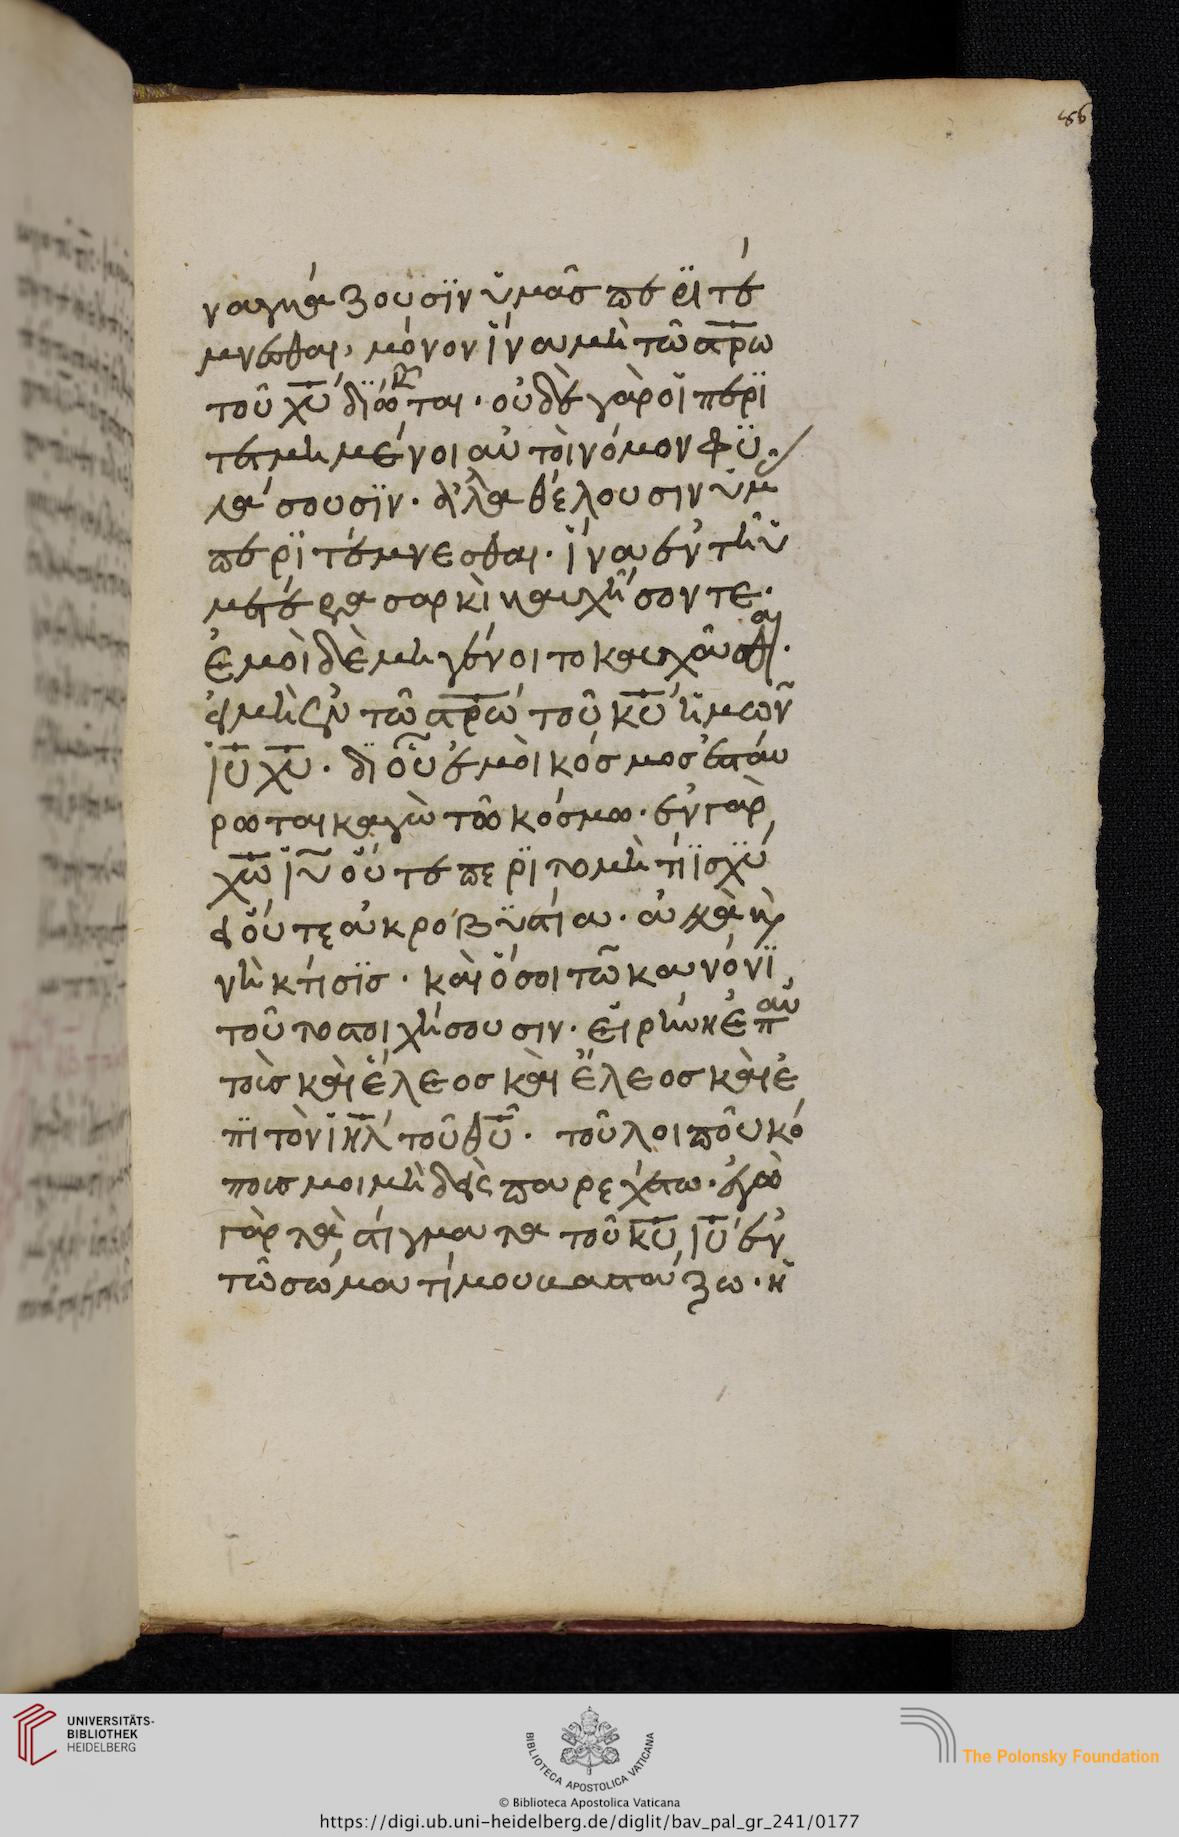 86
ναγκάζουσϊν ὑμᾶσ περϊ τέ
μνεσθαι, μόνον ἵνα μὴ τῶ στρω
τοῦ χυ δϊώκται · οὐδὲ γὰρ οἵ περϊ
τετμημένοι αὐτοὶ νόμον φϋ
λάσουσϊν · ἀλλα θέλουσιν ὑμ
περϊ τέμνεσθαι · ἵνα ἐν τῆ ὑ
μετέρα σαρκὶ καυχήσοντε ·
ἐμοὶ δὲ μὴ γένοιτο καυχᾶσθαι ·
εἰ μὴ ἐν τῶ στρω τοῦ κυ ἡμῶν
ιυ χυ · δϊ οὗ ἐμοὶ κόσμοσ ἐσταύ
ρωται καγὼ τῶ κόσμω · ἐν γαρ
χω ιυ οὔτε περϊτομὴ τί ϊσχϋ
ει οὔτε ἀκροβϋστία · ἀλλὰ και
νὴ κτίσϊσ · καὶ ὅσοι τῶ κανόνϊ
τοῦτο στοιχήσουσιν · εἰρήνη ἐπ αὐ
τοὶσ καὶ ἔλεοσ καὶ ἔλεοσ καὶ ἐ
πϊ τὸν ιηλ τοῦ θυ · τοῦ λοιποῦ κό
πουσ μοι μὴ δεὶς παρεχέτω · ἐγὼ
γὰρ τὰ στίγματα τοῦ κυ ιυ ἐν
τῶ σώματί μου βαστάζω · ἡ
UNIVERSITÄTS-
BIBLIOTHEK
HEIDELBERG
BIBLIOTECA APOSTOLICA VATICANA
The Polonsky Foundation
© Biblioteca Apostolica Vaticana
https://digi.ub.uni-heidelberg.de/diglit/bav_pal_gr_241/0177